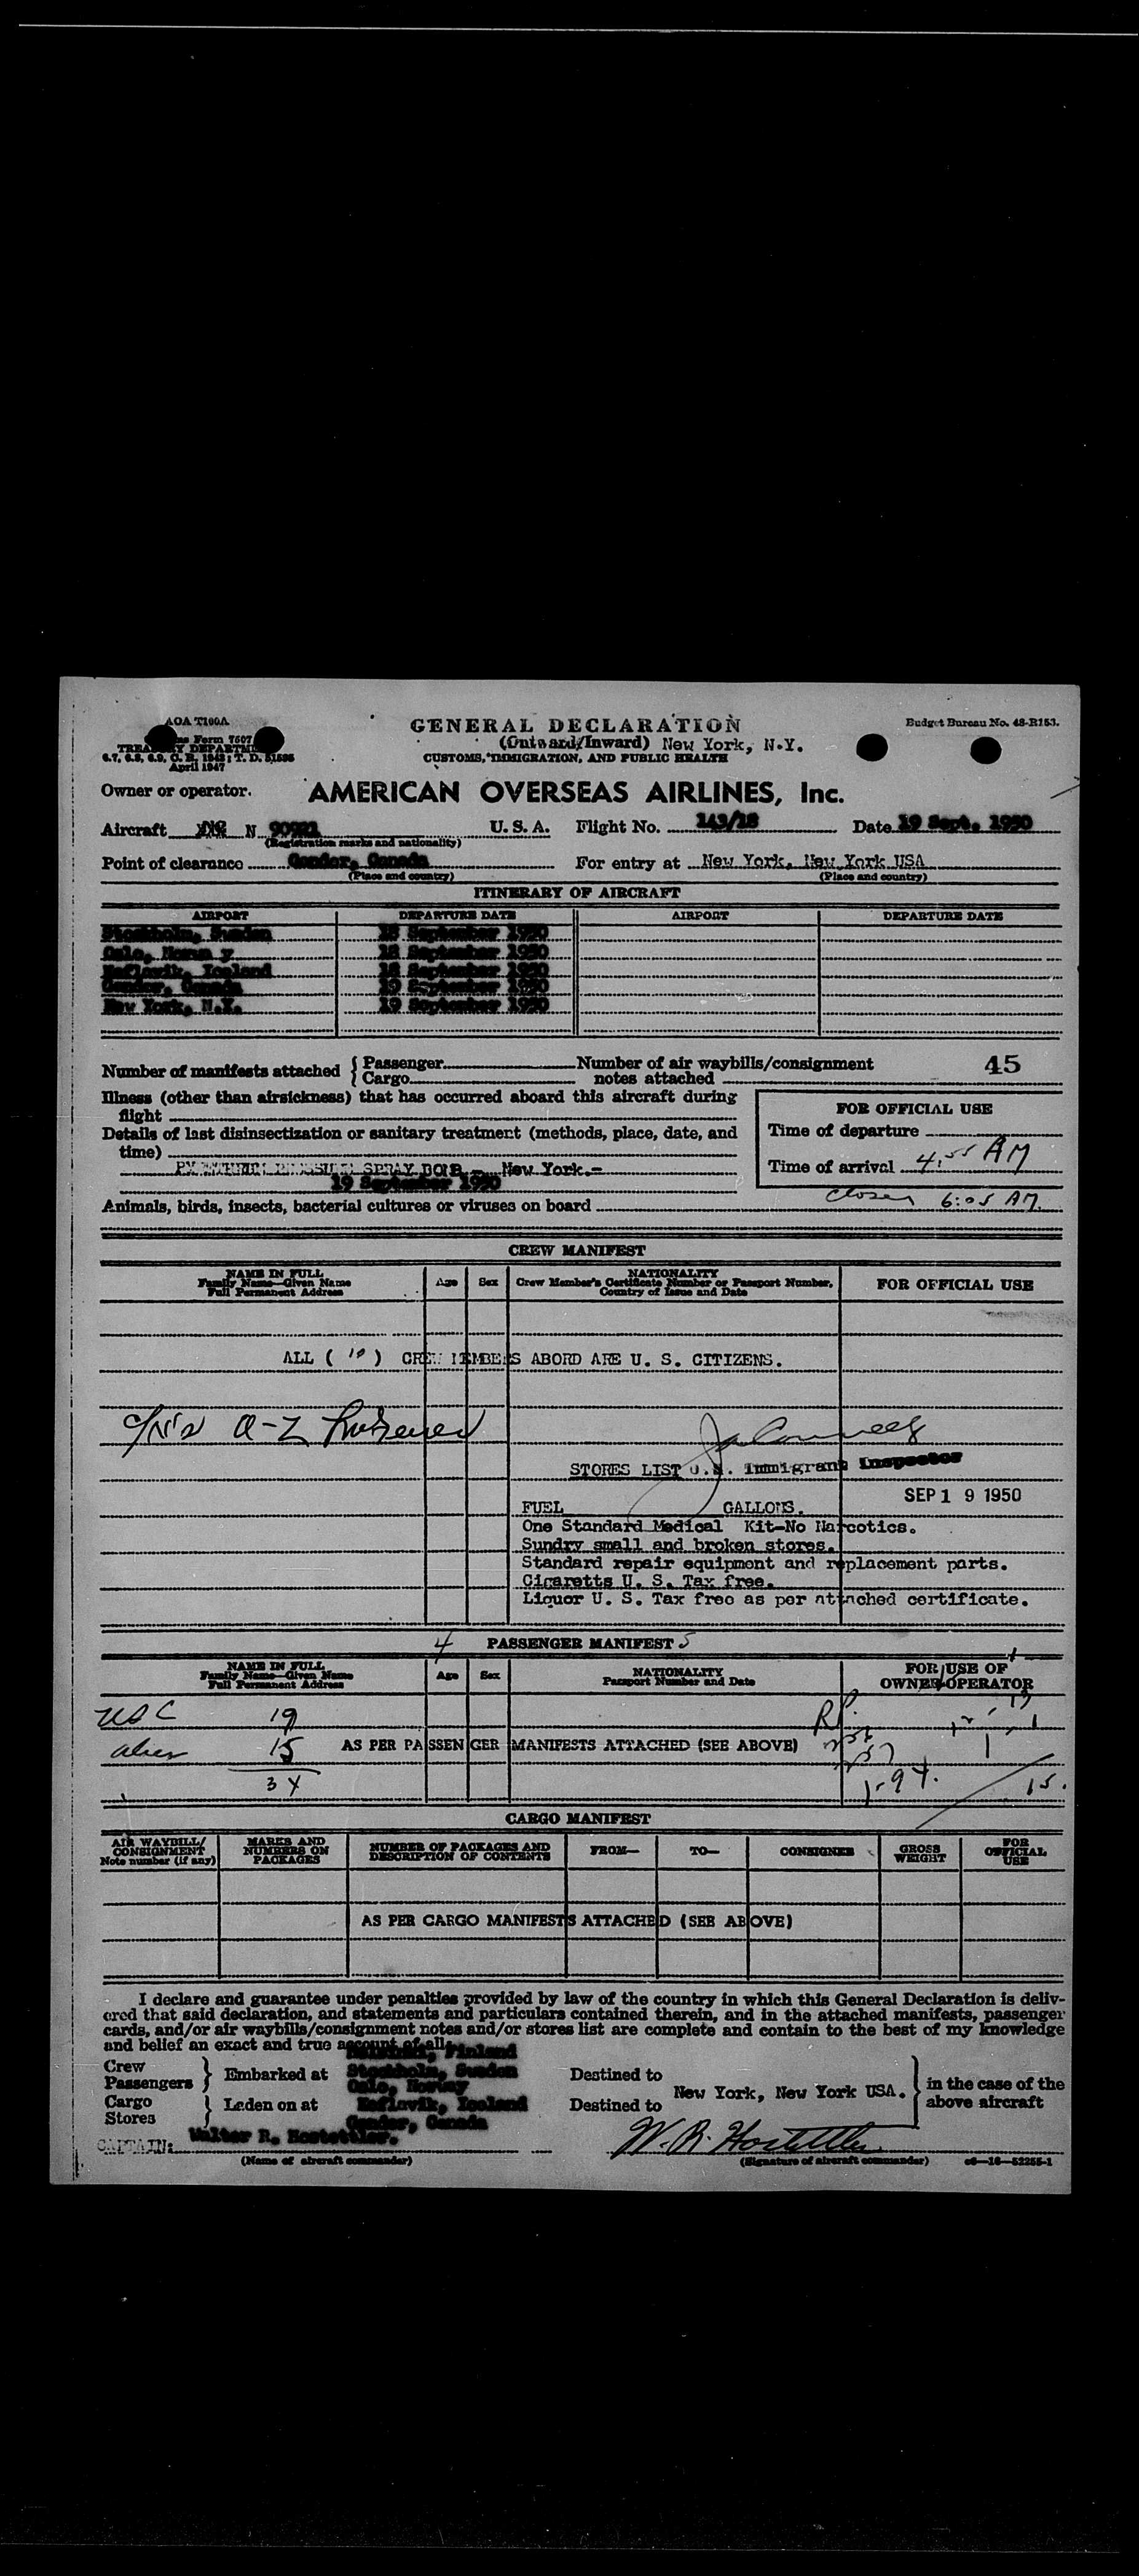 AOA T100A
GENERAL DECLARATION
Budget Bureau No. 48-R153.
Form 7507
(Outward/Inward) New York, N.Y.
TREASURY DEPARTMENT
CUSTOMS, IMMIGRATION, AND PUBLIC HEALTH
6.7, 6.8, 6.9, C. R. 1943; T. D. 51595
April 1947
Owner or operator. AMERICAN OVERSEAS AIRLINES, Inc.
Aircraft N 90921 U. S. A. Flight No. 143/18 Date 19 Sept. 1950
(Registration marks and nationality)
Point of clearance Gander, Canada For entry at New York, New York USA
(Place and country) (Place and country)
ITINERARY OF AIRCRAFT
AIRPORT DEPARTURE DATE AIRPORT DEPARTURE DATE
Stockholm, Sweden 18 September 1950
Oslo, Norway 18 September 1950
Keflavik, Iceland 18 September 1950
Gander, Canada 19 September 1950
New York, N.Y. 19 September 1950
Number of manifests attached { Passenger Number of air waybills/consignment 45
Cargo notes attached
Illness (other than airsickness) that has occurred aboard this aircraft during
flight
FOR OFFICIAL USE
Details of last disinsectization or sanitary treatment (methods, place, date, and
time)
Time of departure
SPRAY BOMB - New York.-
Time of arrival 4:55 AM
19 September 1950
closed 6:05 AM.
Animals, birds, insects, bacterial cultures or viruses on board
CREW MANIFEST
NAME IN FULL
Family Name—Given Name
Full Permanent Address
Age Sex
NATIONALITY
Crew Member's Certificate Number or Passport Number,
Country of Issue and Date
FOR OFFICIAL USE
ALL ( 10 ) CREW MEMBERS ABORD ARE U. S. CITIZENS.
STORES LIST U.S. Immigrant Inspector
SEP 19 1950
FUEL GALLONS.
One Standard Medical Kit-No Narcotics.
Sundry small and broken stores.
Standard repair equipment and replacement parts.
Cigaretts U. S. Tax free.
Liquor U. S. Tax free as per attached certificate.
4 PASSENGER MANIFEST 5
NAME IN FULL
Family Name—Given Name
Full Permanent Address
Age Sex
NATIONALITY
Passport Number and Date
FOR USE OF
OWNER/OPERATOR
USC 19
alien 15 AS PER PASSENGER MANIFESTS ATTACHED (SEE ABOVE)
34
15.
CARGO MANIFEST
AIR WAYBILL/
CONSIGNMENT
Note number (if any)
MARKS AND
NUMBERS ON
PACKAGES
NUMBER OF PACKAGES AND
DESCRIPTION OF CONTENTS
FROM— TO— CONSIGNEE
GROSS
WEIGHT
FOR
OFFICIAL
USE
AS PER CARGO MANIFESTS ATTACHED (SEE ABOVE)
I declare and guarantee under penalties provided by law of the country in which this General Declaration is deliv-
ered that said declaration, and statements and particulars contained therein, and in the attached manifests, passenger
cards, and/or air waybills/consignment notes and/or stores list are complete and contain to the best of my knowledge
and belief an exact and true account of all
Finland
Crew
Passengers } Embarked at Stockholm, Sweden Destined to
Oslo, Norway New York, New York USA. } in the case of the
above aircraft
Cargo
Stores } Laden on at Keflavik, Iceland Destined to
Gander, Canada
CAPTAIN: Walter R. Hostettler. W. R. Hostettler
(Name of aircraft commander) (Signature of aircraft commander) c6—16—52255-1